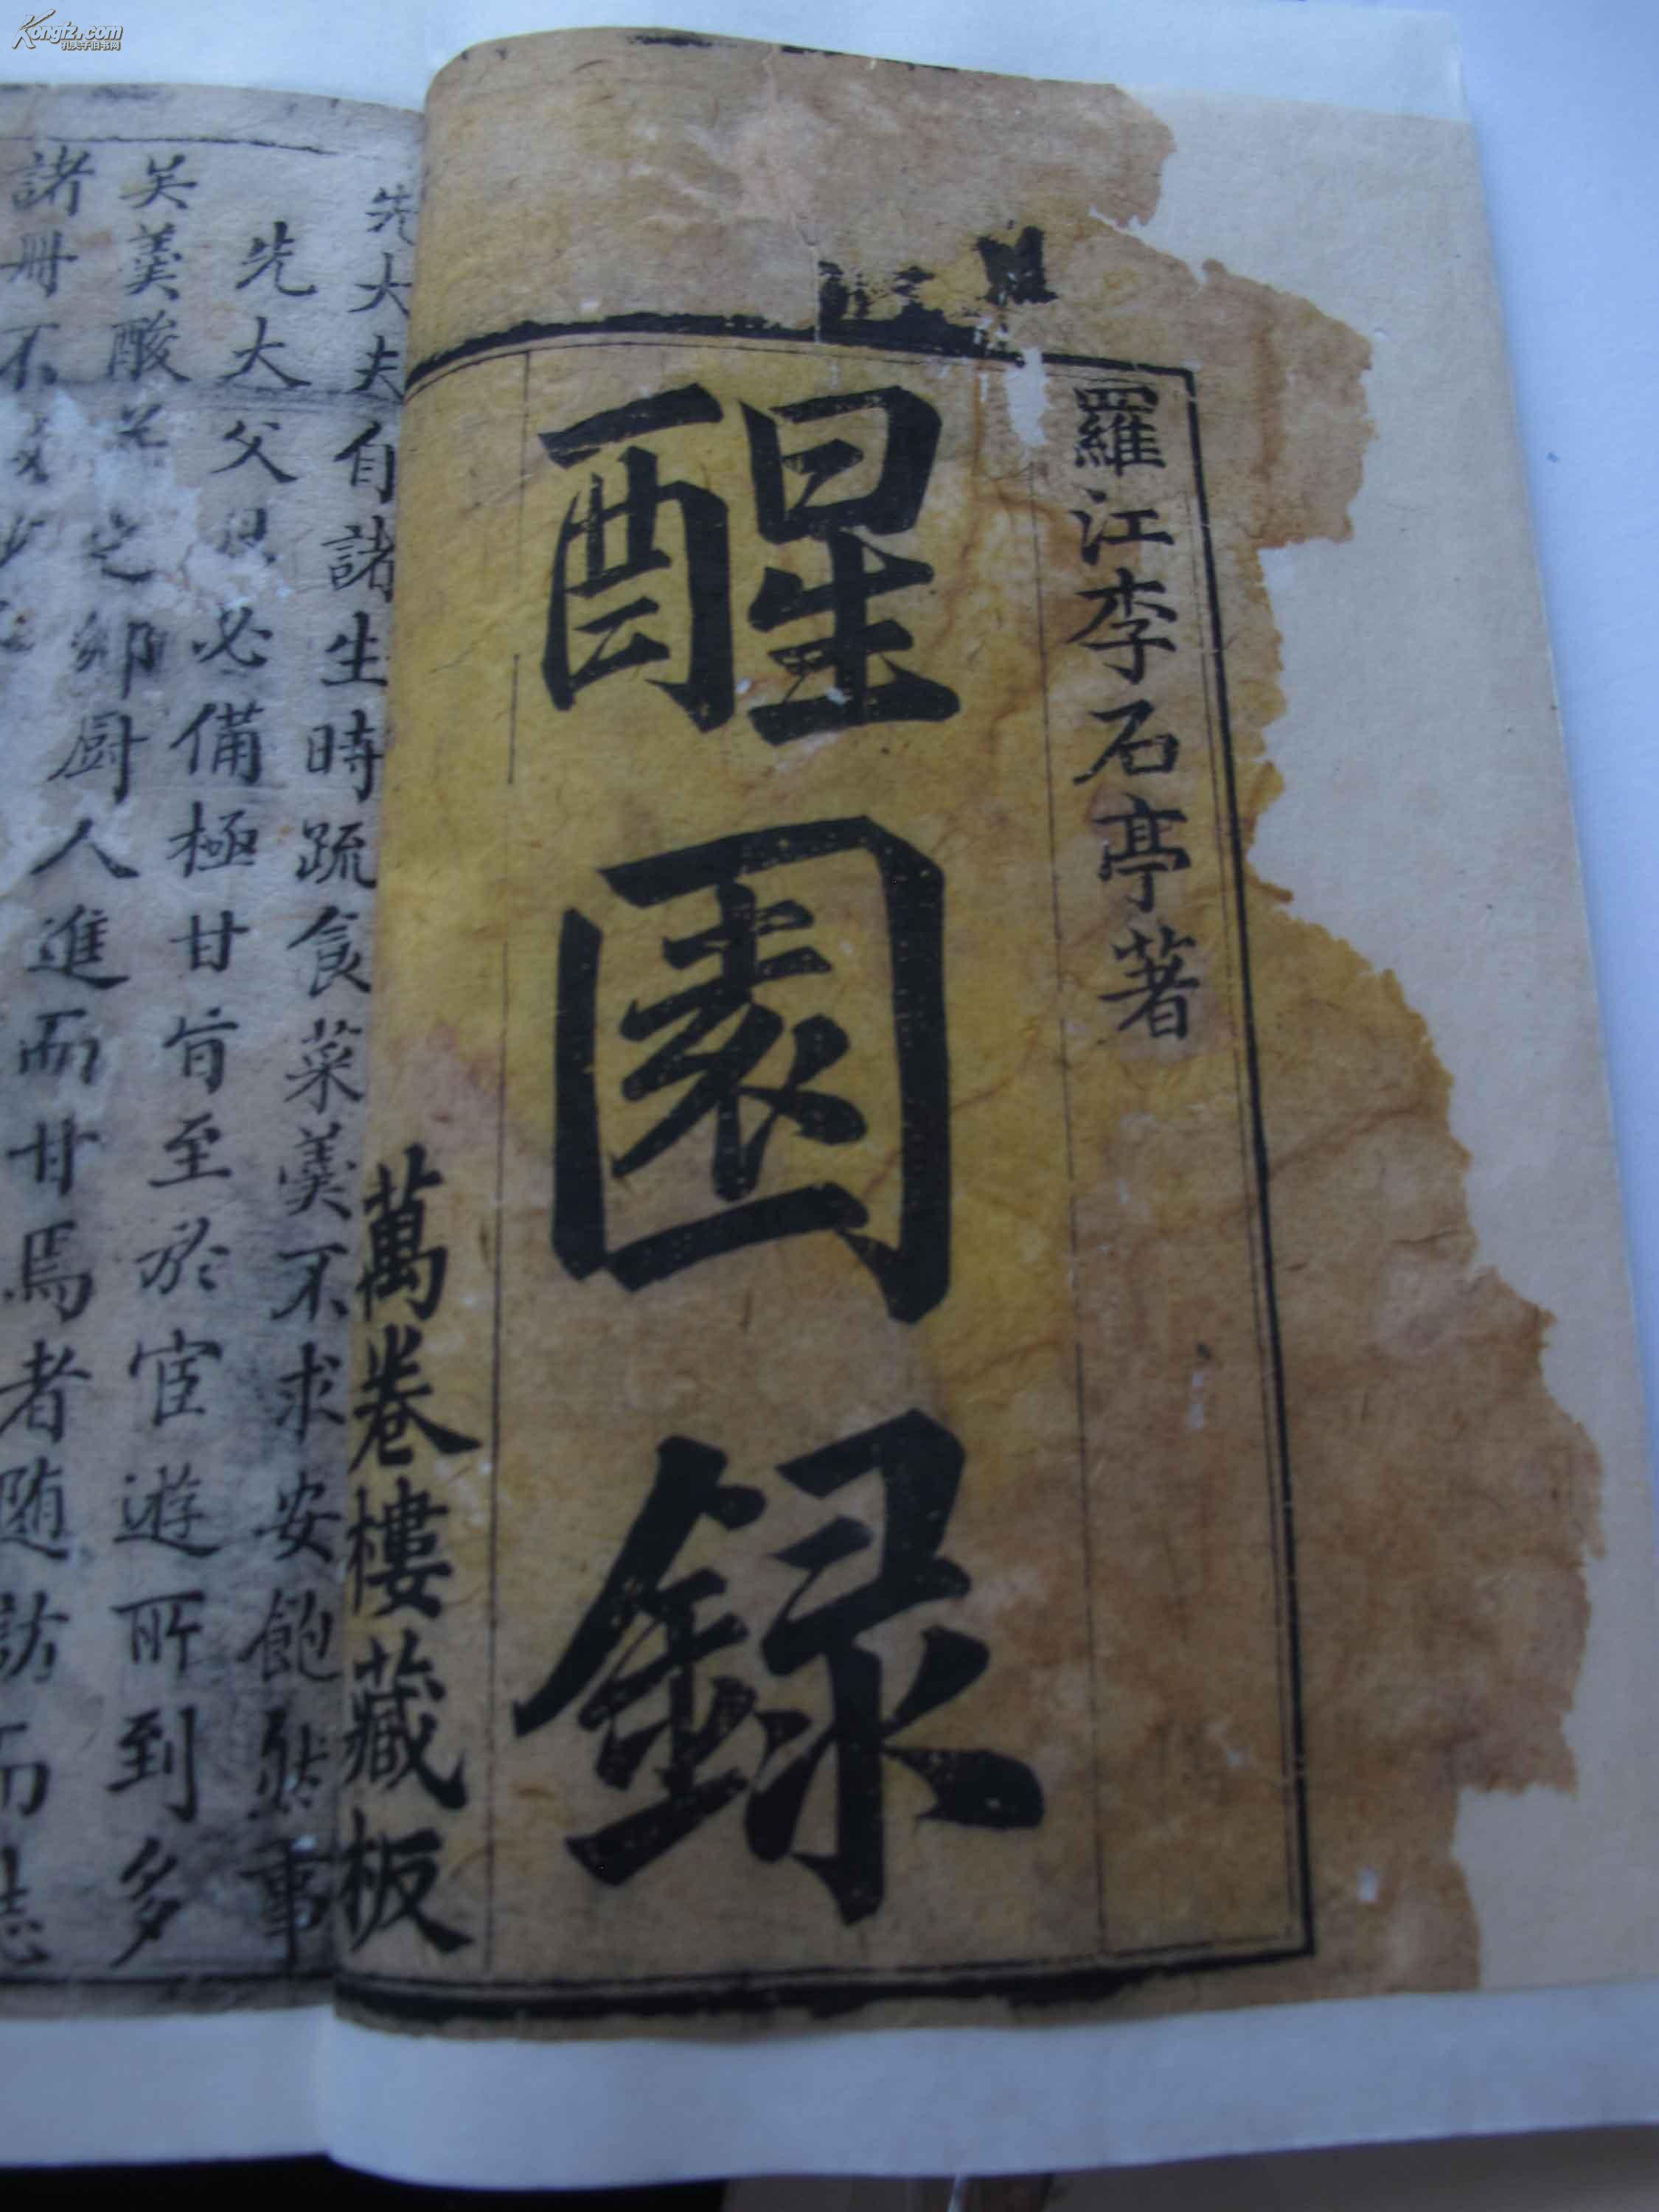 Kongfz.com
孔夫子旧书网
羅江李石亭著
醒園録
萬卷樓藏板
先大夫自諸生時疏食菜羹不求安飽然事
先大父母必備極甘旨至於宦遊所到多
吴羹酸苦之鄉厨人進而甘焉者随訪而志
諸冊不